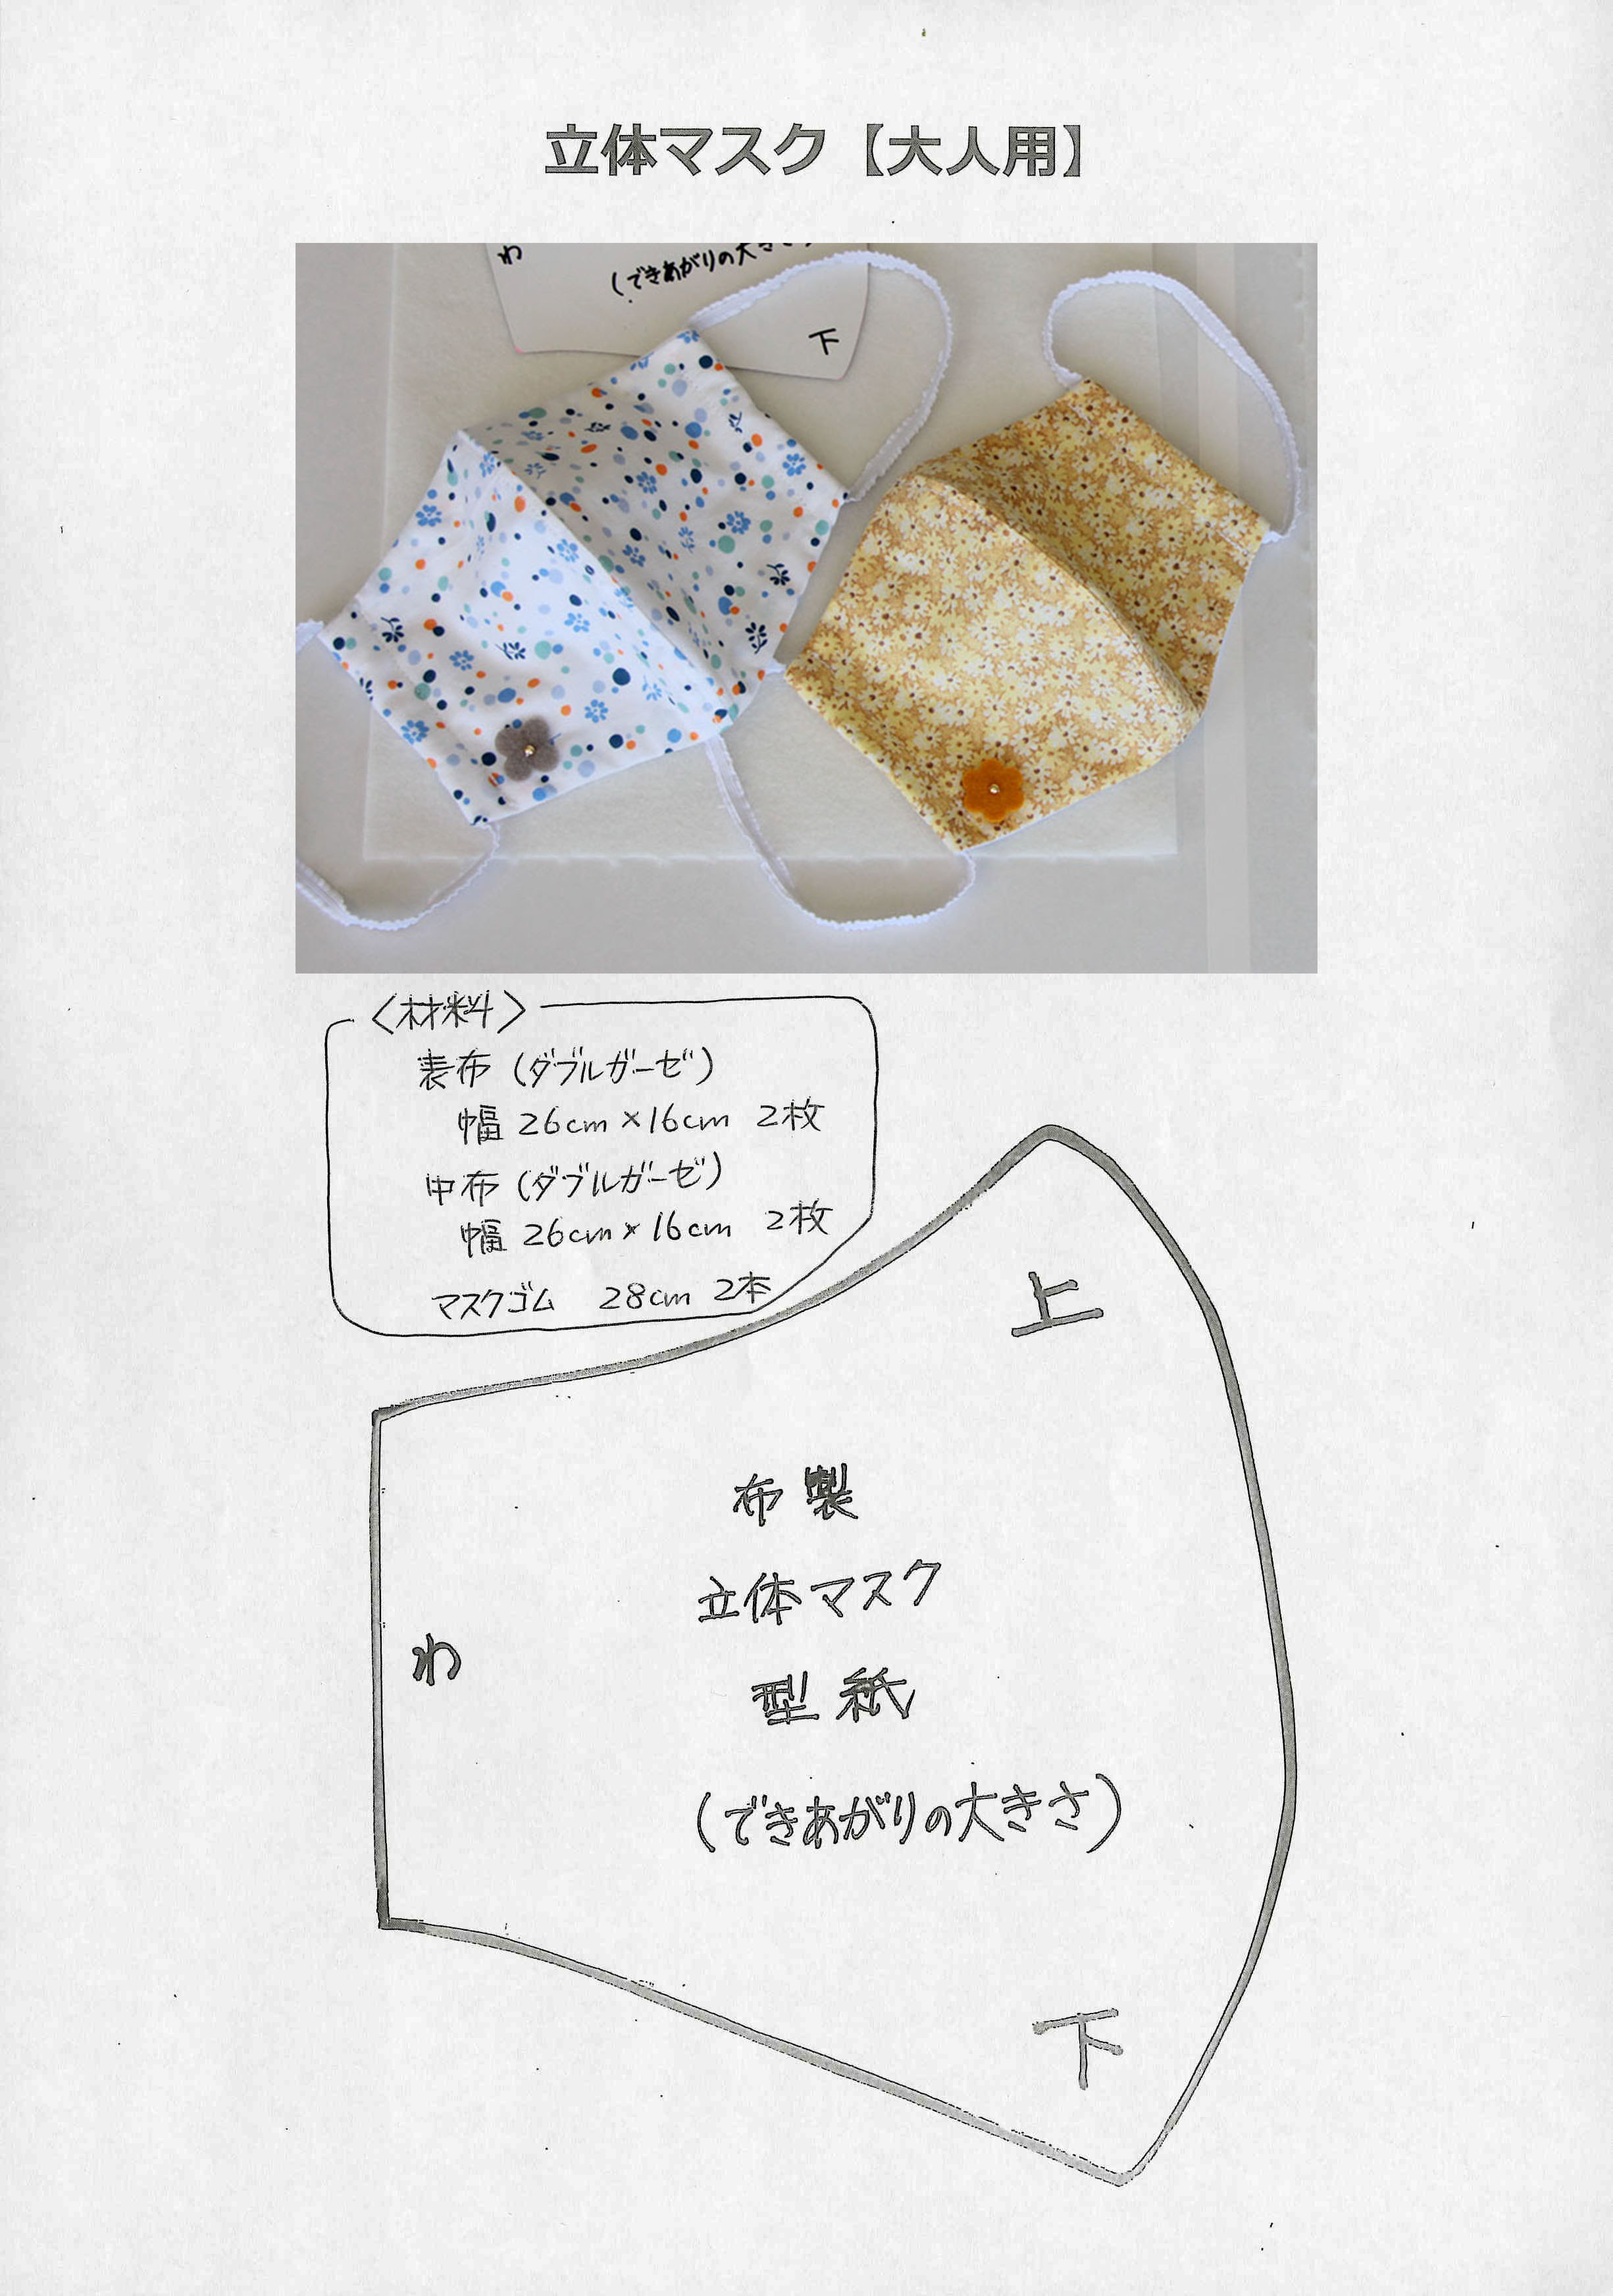 立体マスク【大人用】
わ
(できあがりの大きさ)
下
〈材料〉
表布(ダブルガーゼ)
幅 26cm×16cm 2枚
中布(ダブルガーゼ)
幅 26cm×16cm 2枚
マスクゴム 28cm 2本
上
布製
立体マスク
わ
型紙
(できあがりの大きさ)
下